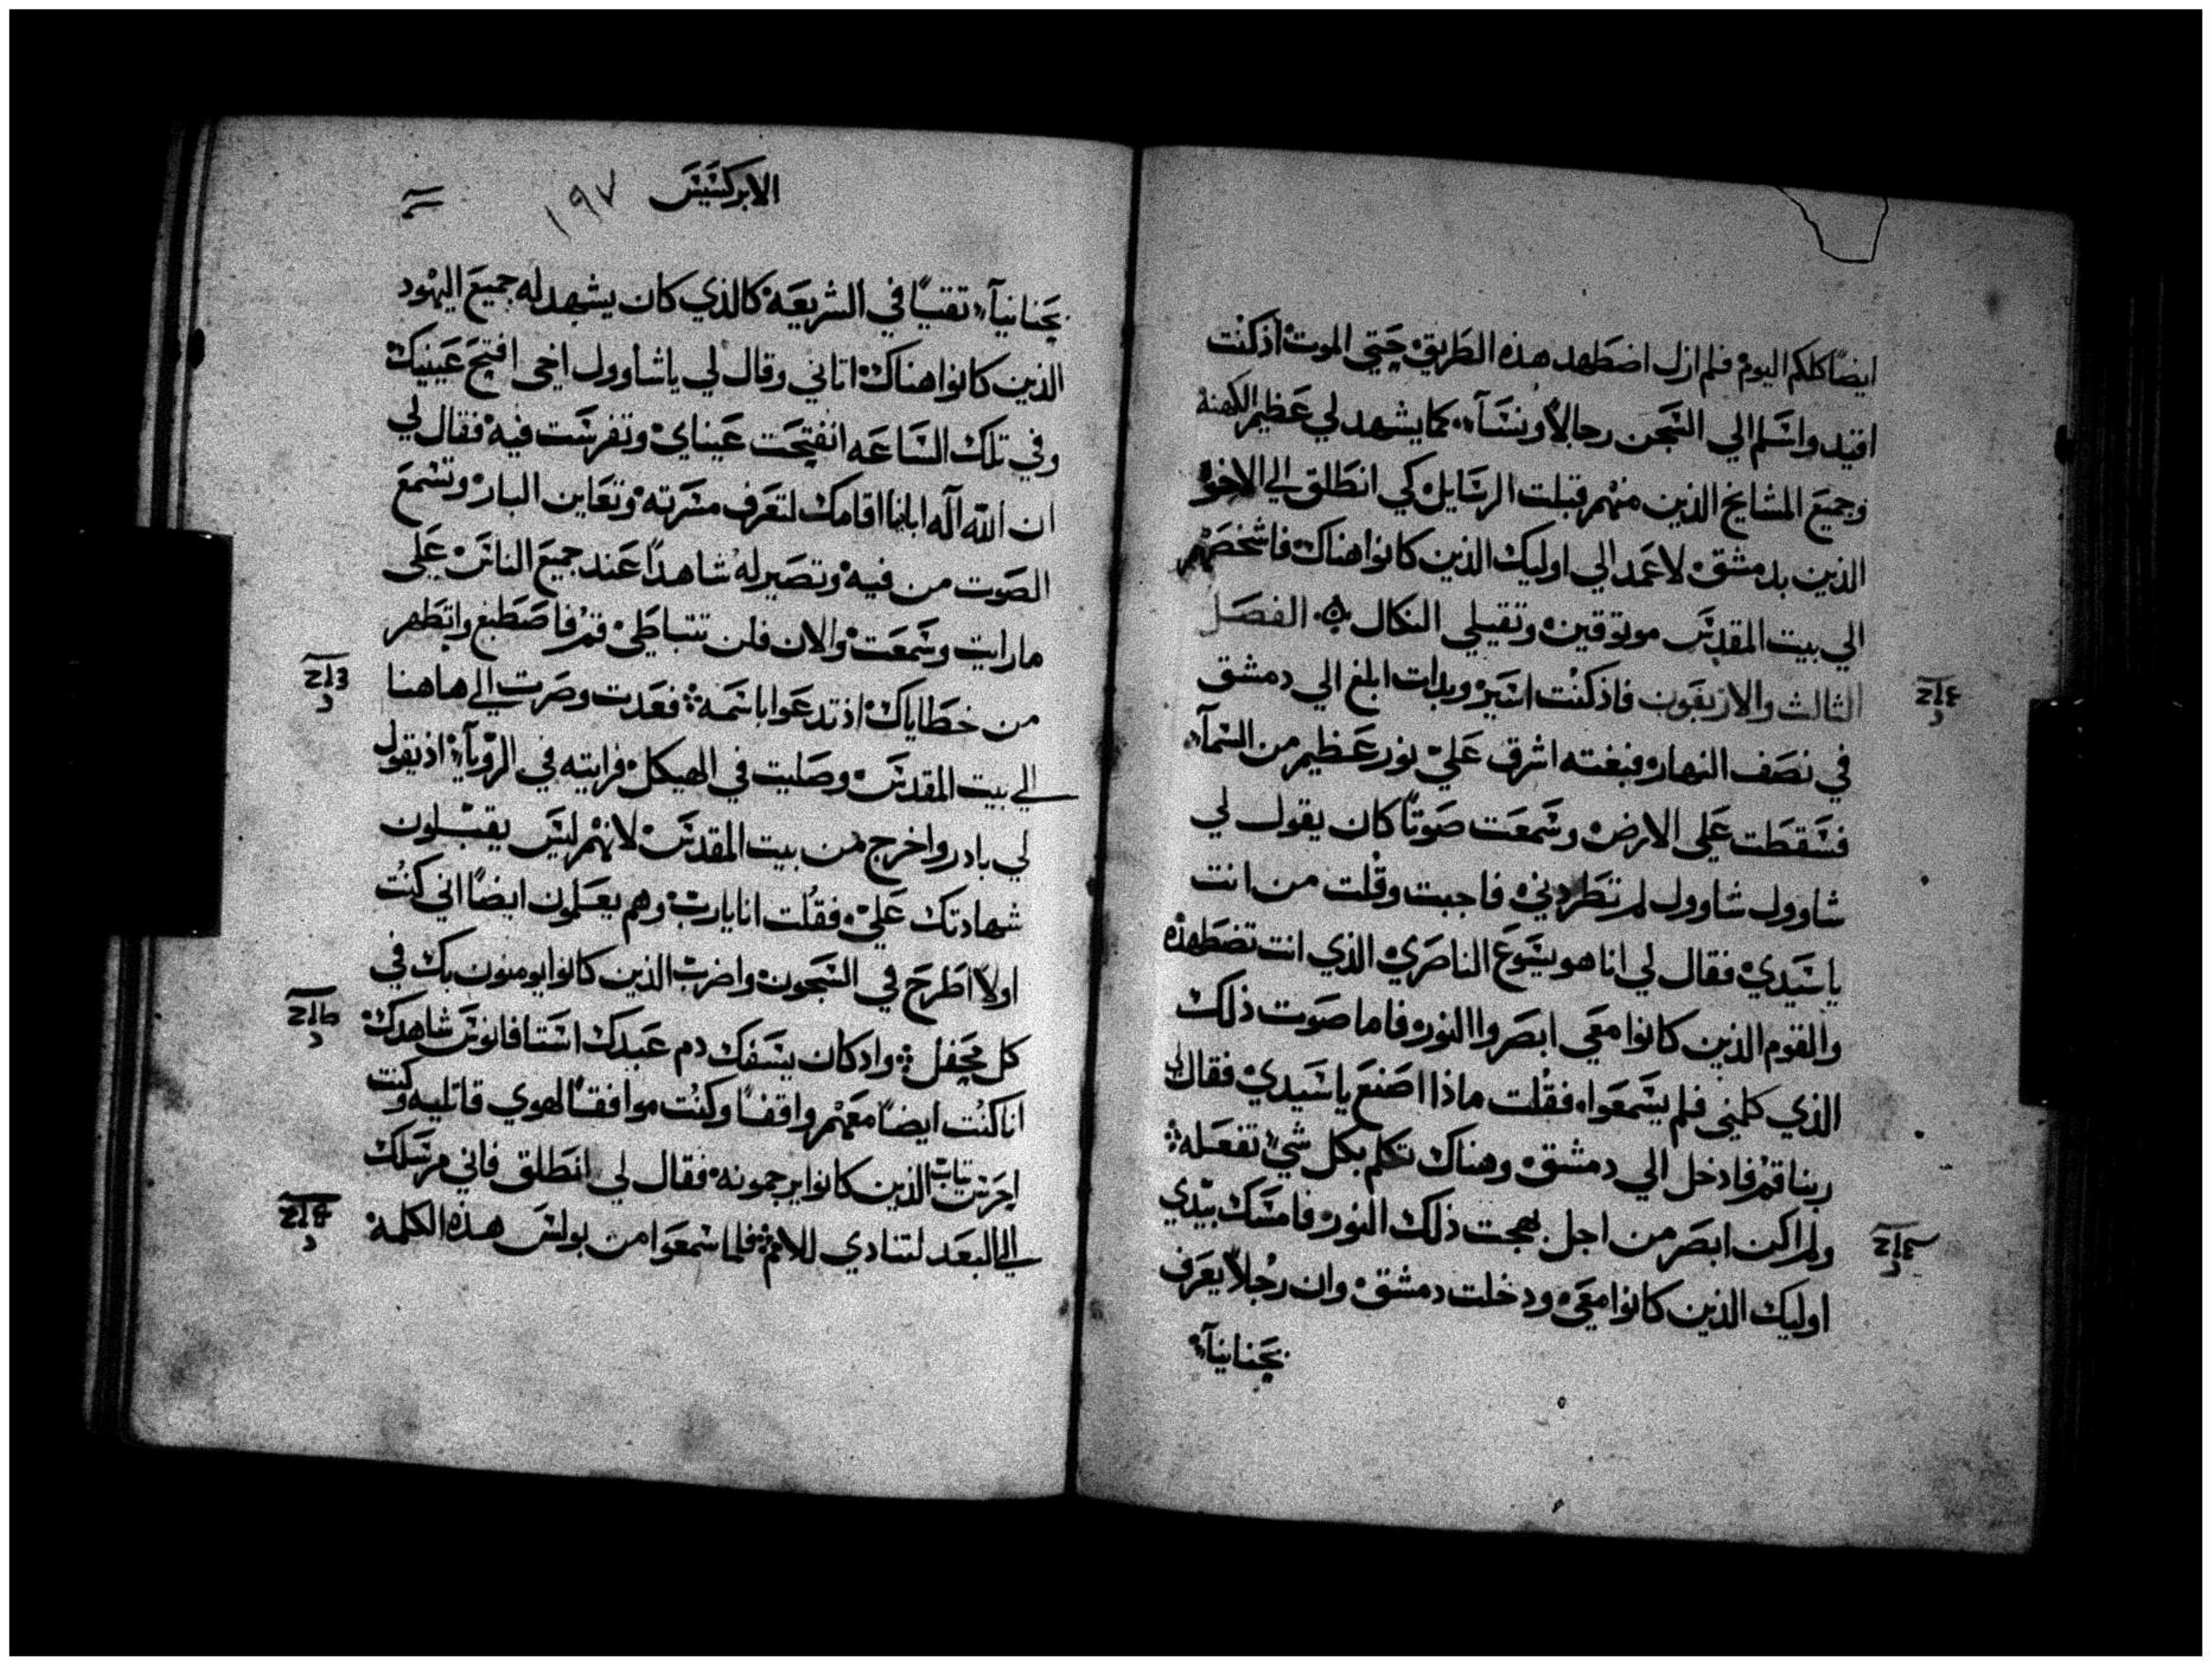 ايضًا كلكم اليوم فلم ازل اضطهد هذه الطريق حتي الموت اذ كنت
اقيد واسلم الي السجن رجالاً ونسآء كما يشهد لي عظيم الكهنة
وجميع المشايخ الذين منهم قبلت الرسايل كي انطلق الي الاخوة
الذين بدمشق لاعمد الي اوليك الذين كانوا هناك فاشخصهم
الي بيت المقدس موثوقين وتقيلي النكال الفصل
الثالث والاربعون فاذ كنت اسير وبدات ابلغ الي دمشق
في نصف النهار فبغته اشرق علي نور عظيم من السمآء
فسقطت علي الارض وسمعت صوتًا كان يقول لي
شاوول شاوول لم تطردني فاجبت وقلت من انت
ياسيدي فقال لي انا هو يسوع الناصري الذي انت تضطهده
والقوم الذين كانوا معي ابصروا النور فاما صوت ذلك
الذي كلمني فلم يسمعوا فقلت ماذا اصنع ياسيدي فقال لي
ربنا قم فادخل الي دمشق وهناك تكلم بكل شي تفعله
ولم اكن ابصر من اجل بهجت ذلك النور فامسك بيدي
اوليك الذين كانوا معي ودخلت دمشق وان رجلاً يعرف
بحنانيآء
الابركسيس ١٩٧
بحنانيآء تقيًا في الشريعة كالذي كان يشهد له جميع اليهود
الذين كانوا هناك اتاني وقال لي ياشاوول اخي افتح عينيك
وفي تلك الساعه انفتحت عيناي وتفرست فيه فقال لي
ان الله آله ابائنا اقامك لتعرف مسرته وتعاين البار وتسمع
الصوت من فيه وتصير له شاهدًا عند جميع الناس علي
مارايت وسمعت والان فلن تتباطي قم فاصطبغ واتطهر
من خطاياك اذ تدعوا باسمه فعدت وصرت الي هاهنا
الي بيت المقدس وصليت في الهيكل فرايته في الرويآ اذ يقول
لي بادر واخرج من بيت المقدس لانهم ليس يقبلون
شهادتك علي فقلت انا يارب وهم يعلمون ايضًا اني كنت
اولاً اطرح في السجون واضرب الذين كانوا يومنون بك في
كل محفل واد كان يسفك دم عبدك استافانوس شاهدك
انا كنت ايضًا معهم واقفًا وكنت موافقًا لهوي قاتليه وكنت
احرس تياب الذين كانوا يرجمونه فقال لي انطلق فاني مرسلك
الي البعد لتنادي للامم فلما سمعوا من بولس هذه الكلمة